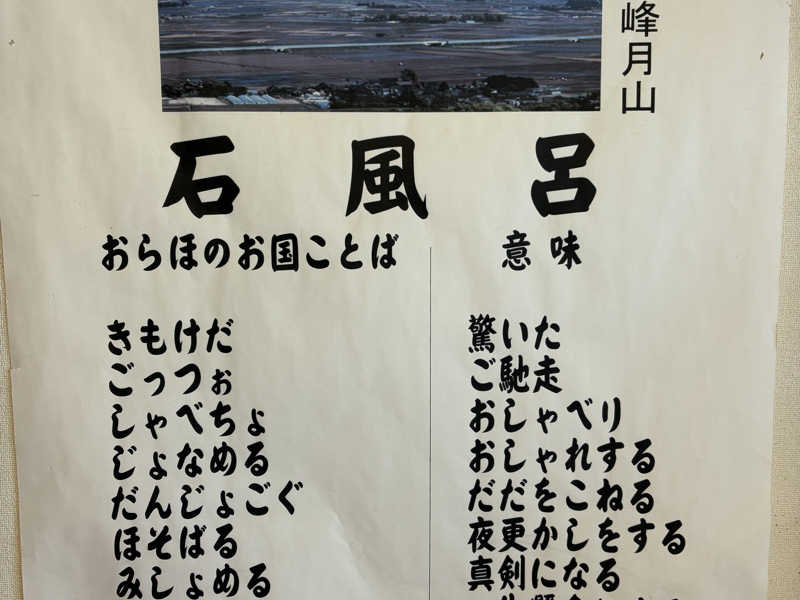 峰月山
石風呂
おらほのお国ことば 意味
きもけだ 驚いた
ごっつぉ ご馳走
しゃべちょ おしゃべり
じょなめる おしゃれする
だんじょごぐ だだをこねる
ほそばる 夜更かしをする
みしょめる 真剣になる